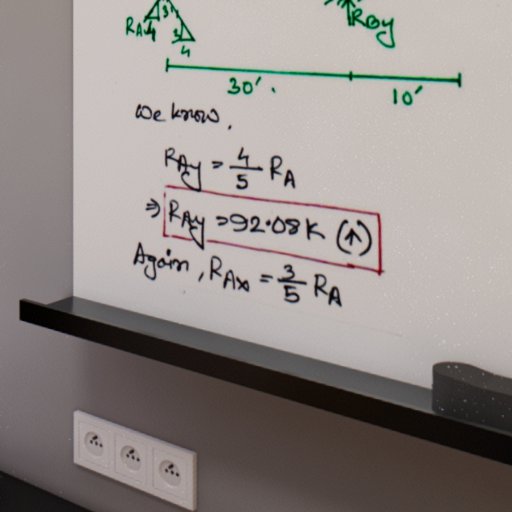 RA 3
4 3
4
RBy
30'.
10'
We know,
RAy = 4/5 RA
⇒ RAy = 92.08K (↑)
Again, RAx = 3/5 RA